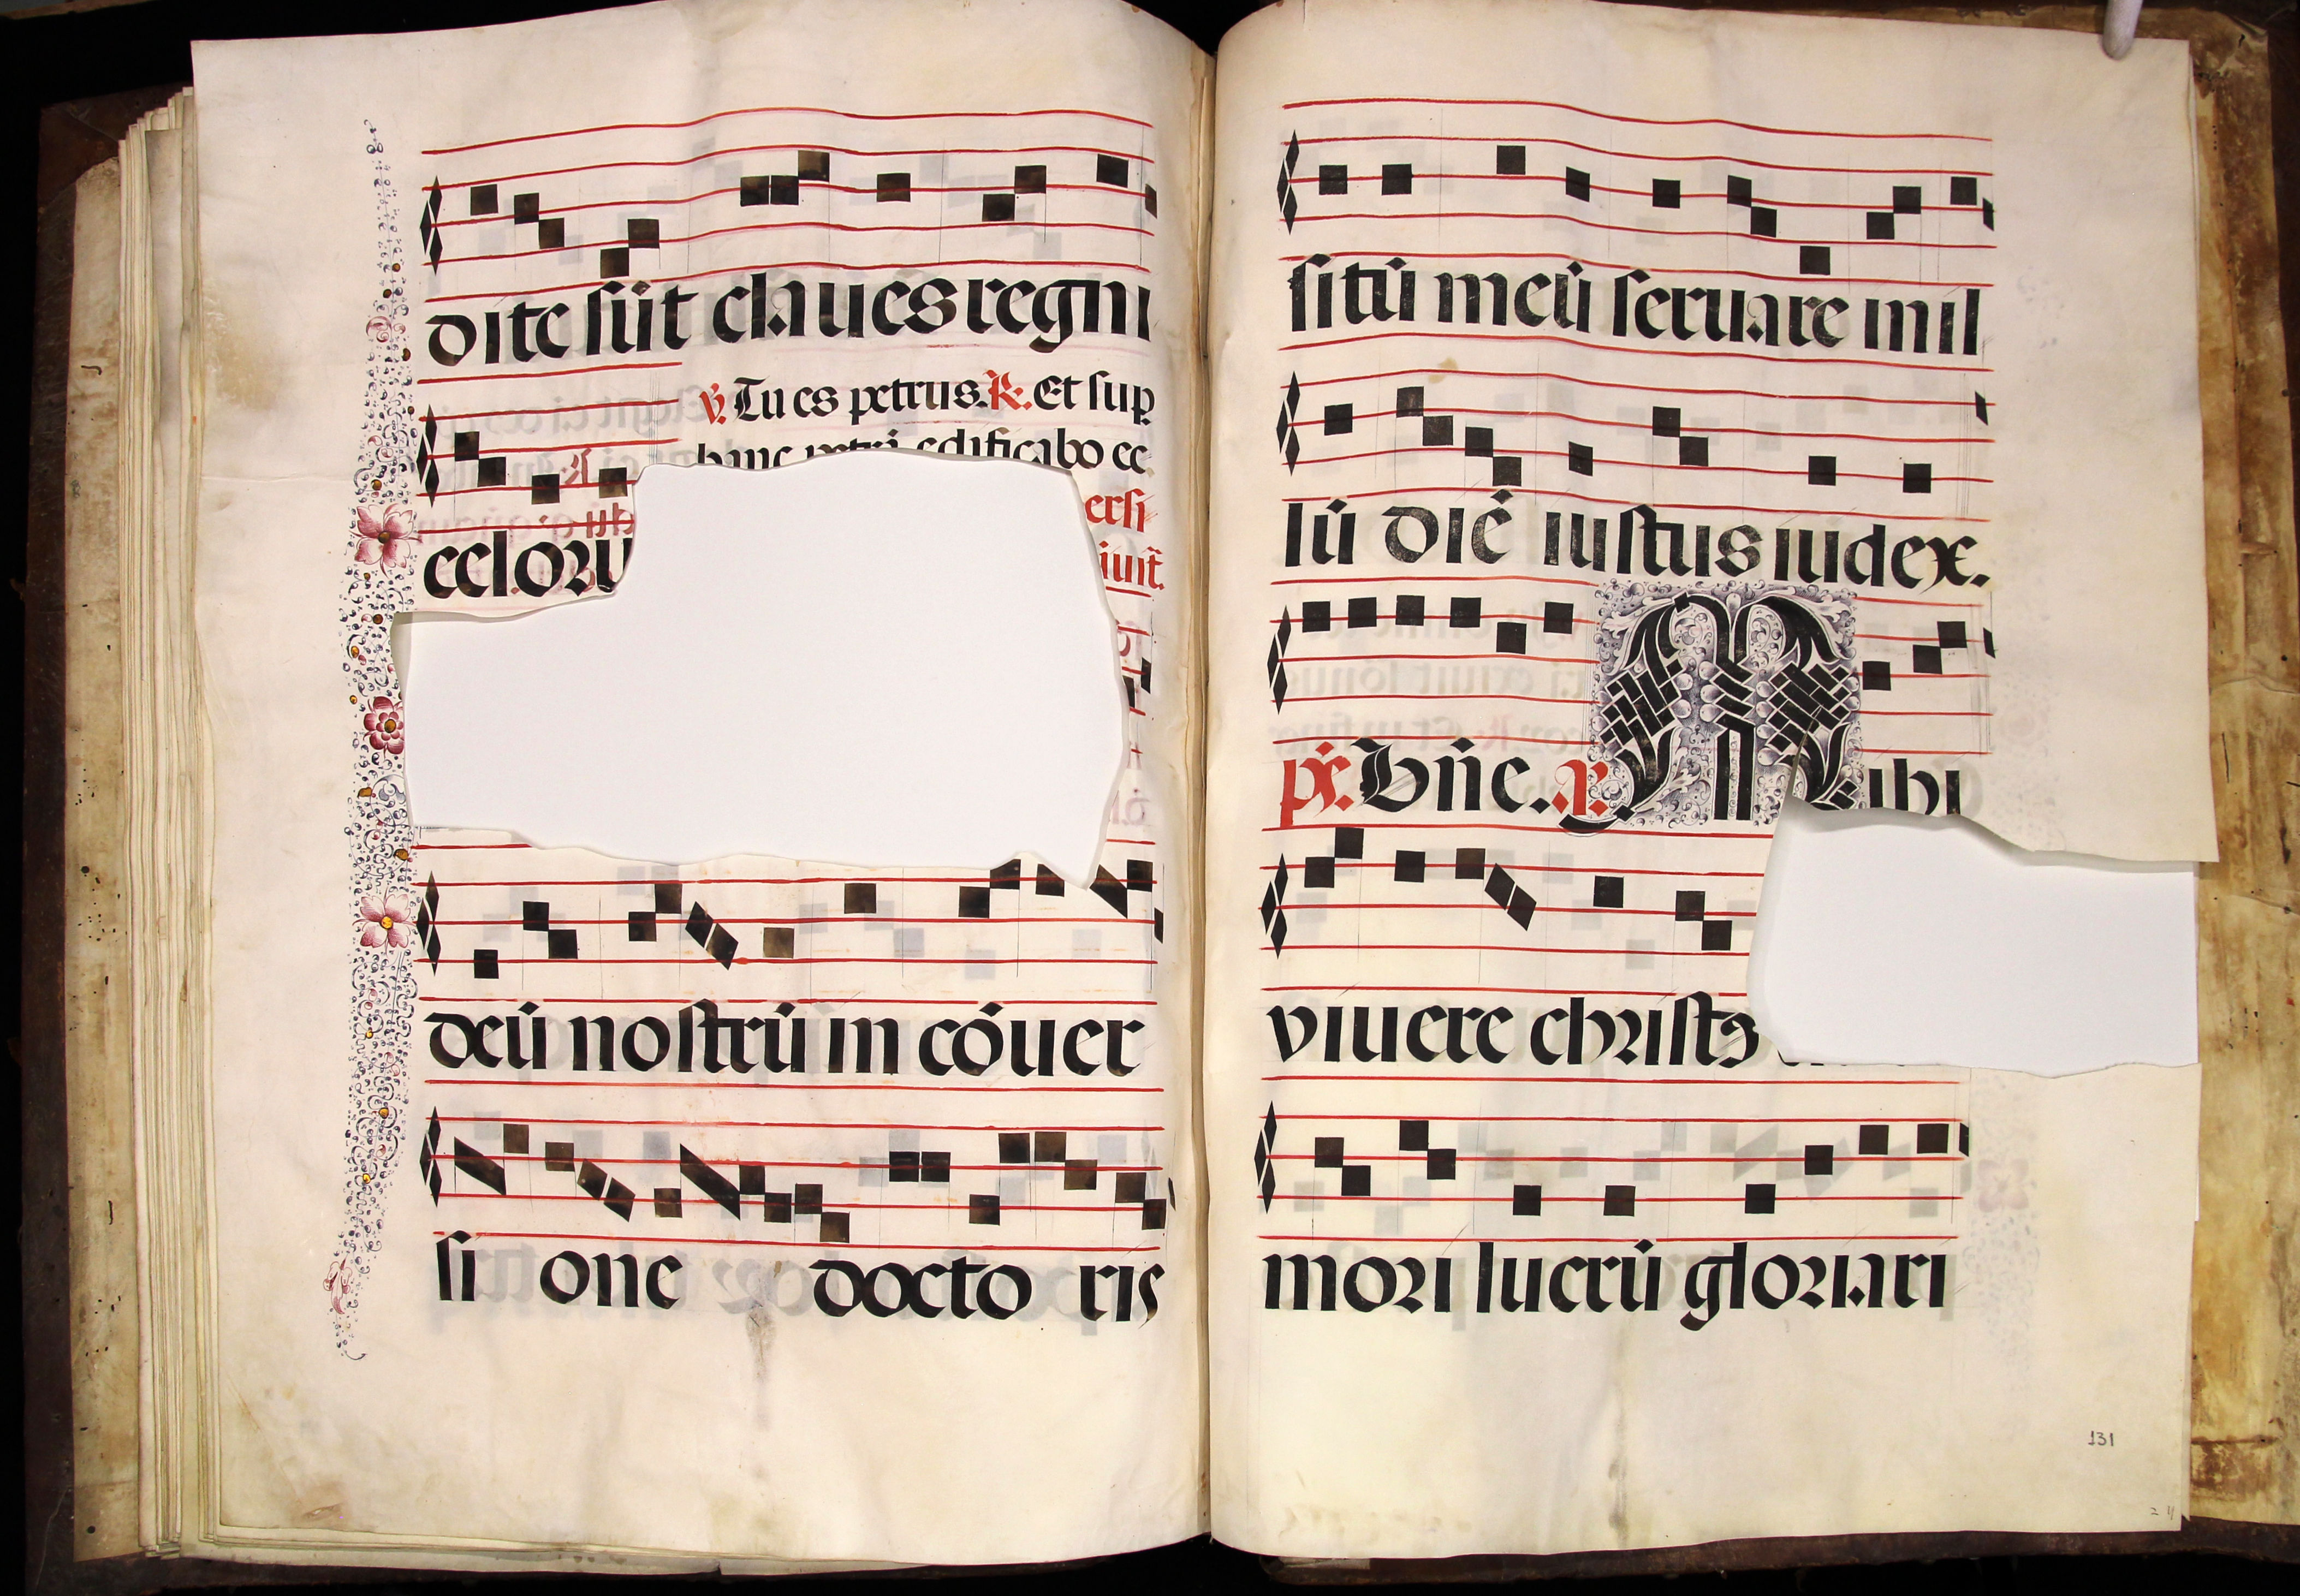 dite sūt claues regni
℣. Tu es petrus. ℟. Et sup
hanc petrā edificabo ec
celoru
ersi
iuit̄.
deū nostrū in cōuer
si one docto ris
sitū meū seruare in il
lū diē iustus iudex.
ps. Bn̄e. a. Mihi
viuere christꝰ
mori lucrū gloriari
131